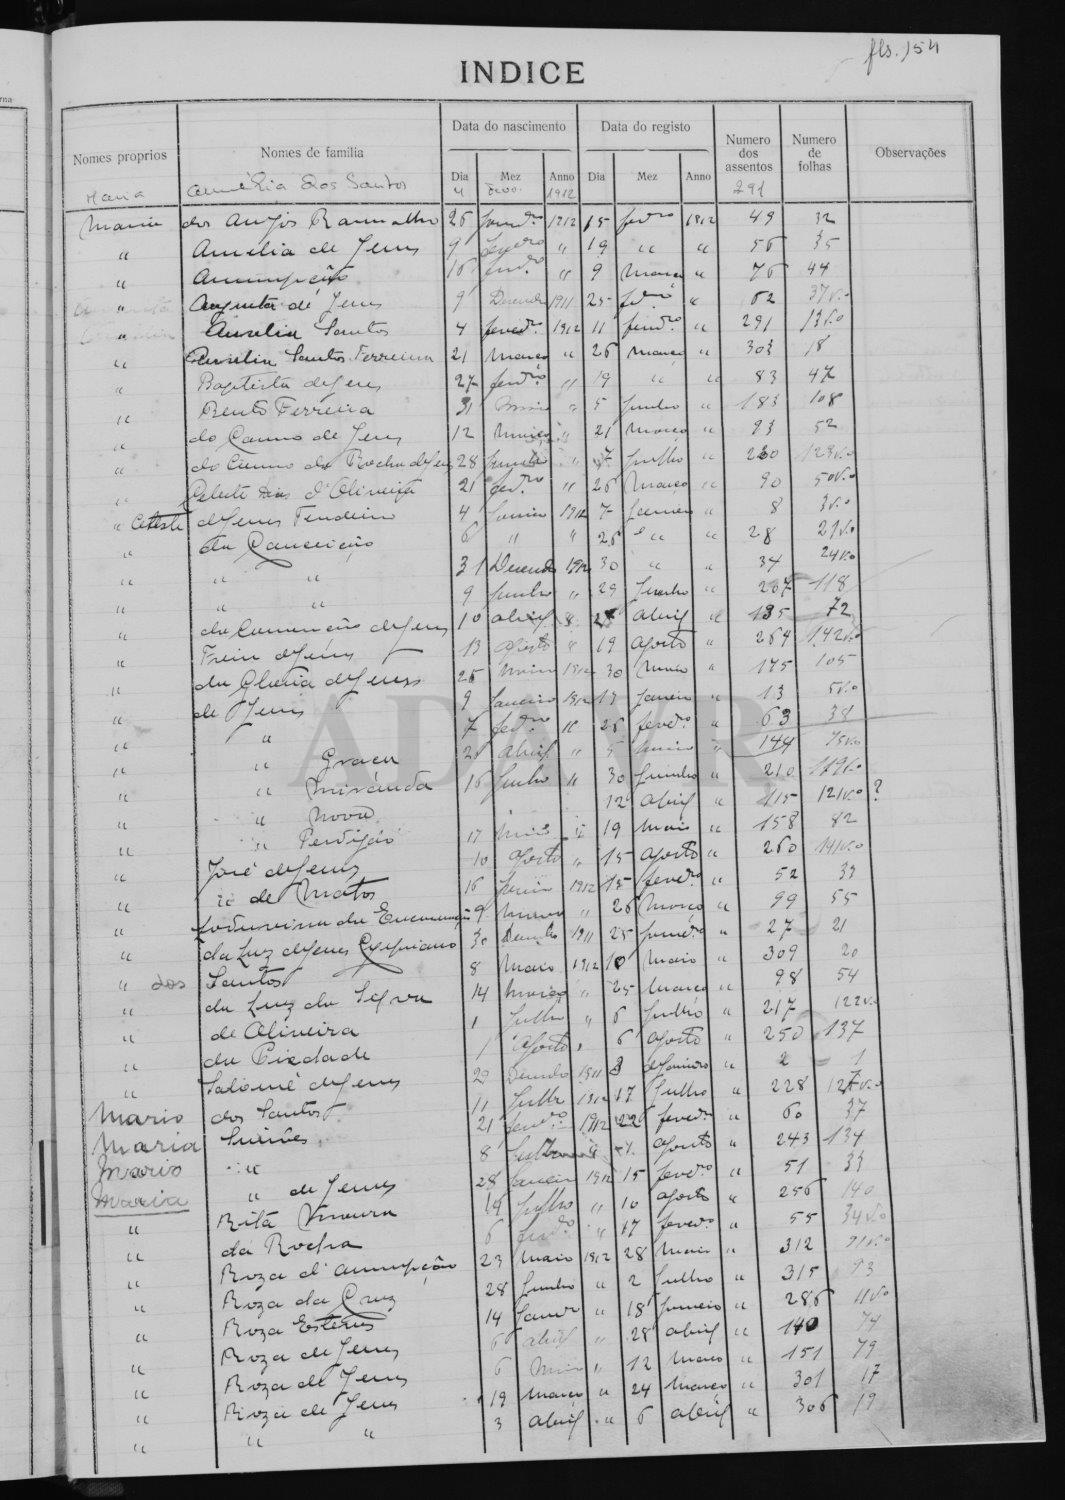 fls. 154
INDICE
Nomes proprios Nomes de familia Data do nascimento Data do registo Numero dos assentos Numero de folhas Observações
Dia Mez Anno Dia Mez Anno
Maria Amélia dos Santos 4 1912 291
Maria dos Anjos Ramalho 26 1912 15 1912 49 32
" Amelia de Jesus 9 " 19 " " 56 35
" Assumpção 16 " 9 Março " 76 44
" Augusta de Jesus 9 Dezembro 1911 25 " 62 37 v.o
" Aurelia Santos 4 fever.o 1912 11 " 291 13 v.o
" Aurelia Santos Ferreira 21 Março " 26 Março " 303 18
" Baptista de Jesus 27 " 19 " " 83 47
" Bento Ferreira 31 Maio " 5 Junho " 183 108
" do Carmo de Jesus 12 Março " 21 Março " 93 52
" do Carmo da Rocha de Jesus 28 Junho " 7 Julho " 230
" Celeste Dias d'Oliveira 21 " 26 Março " 90 50 v.o
" Celeste de Jesus Tendeiro 4 Janeiro 1912 7 Janeiro " 8 3 v.o
" da Conceição 6 " " 26 " " 28 21 v.o
" " " 31 Dezembro 30 " " 34 24 v.o
" " " 9 Junho " 29 Junho " 207 118
" da Conceição de Jesus 10 Abril Abril " 135 72
" Freire de Jesus 13 Agosto " 19 Agosto " 264 142 v.o
" da Gloria de Jesus 26 Maio 1912 30 Maio " 175 105
" de Jesus 9 Janeiro 1912 Janeiro " 13 5 v.o
" " 7 " 26 fever.o " 63 38
" " Graça Abril " 5 Maio " 144
" " Miranda 16 Junho " 30 Junho " 210
" " Nova 12 Abril " 115 121 v.o ?
" " Perdigão 17 Maio " 19 Maio " 158 82
" José de Jesus 10 Agosto " 15 Agosto " 260
" " de Matos 16 Janeiro 1912 15 fever.o " 52 33
" Ludovina da Encarnação 9 Março " 26 Março " 99 55
" da Luz de Jesus Cypriano 30 Dezembro 1911 25 " 27 21
" dos Santos 8 Maio 1912 10 Maio " 309 20
" da Luz da Silva 14 Março " 25 Março " 98 54
" de Oliveira 1 Julho " 6 Julho " 217 122 v.o
" da Piedade 1 Agosto " 6 Agosto " 250 137
" Salomé de Jesus 29 Dezembro 1911 3 de Janeiro " 2 1
Mario dos Santos 11 Julho 1912 17 Julho " 228
Maria Simões 21 fever.o 1912 fever.o " 60 37
Mario " 8 Agosto " 243 134
Maria " de Jesus 28 Janeiro 1912 15 fever.o " 51 33
" Rita Moura 19 Julho " 10 Agosto " 256 140
" da Rocha 6 " 17 fever.o " 55 34 v.o
" Roza d'Assumpção 23 Maio 1912 28 Maio " 312
" Roza da Cruz 28 Junho " 2 Julho " 315 93
" Roza Esteves 14 Janeiro " 18 Janeiro " 286 11 v.o
" Roza de Jesus 6 Abril " 28 Abril " 140 74
" Roza de Jesus 6 Maio " 12 Maio " 151 79
" Roza de Jesus 19 Março " 24 Março " 301 17
" " " 3 Abril " 6 Abril " 306 19
ADAVR